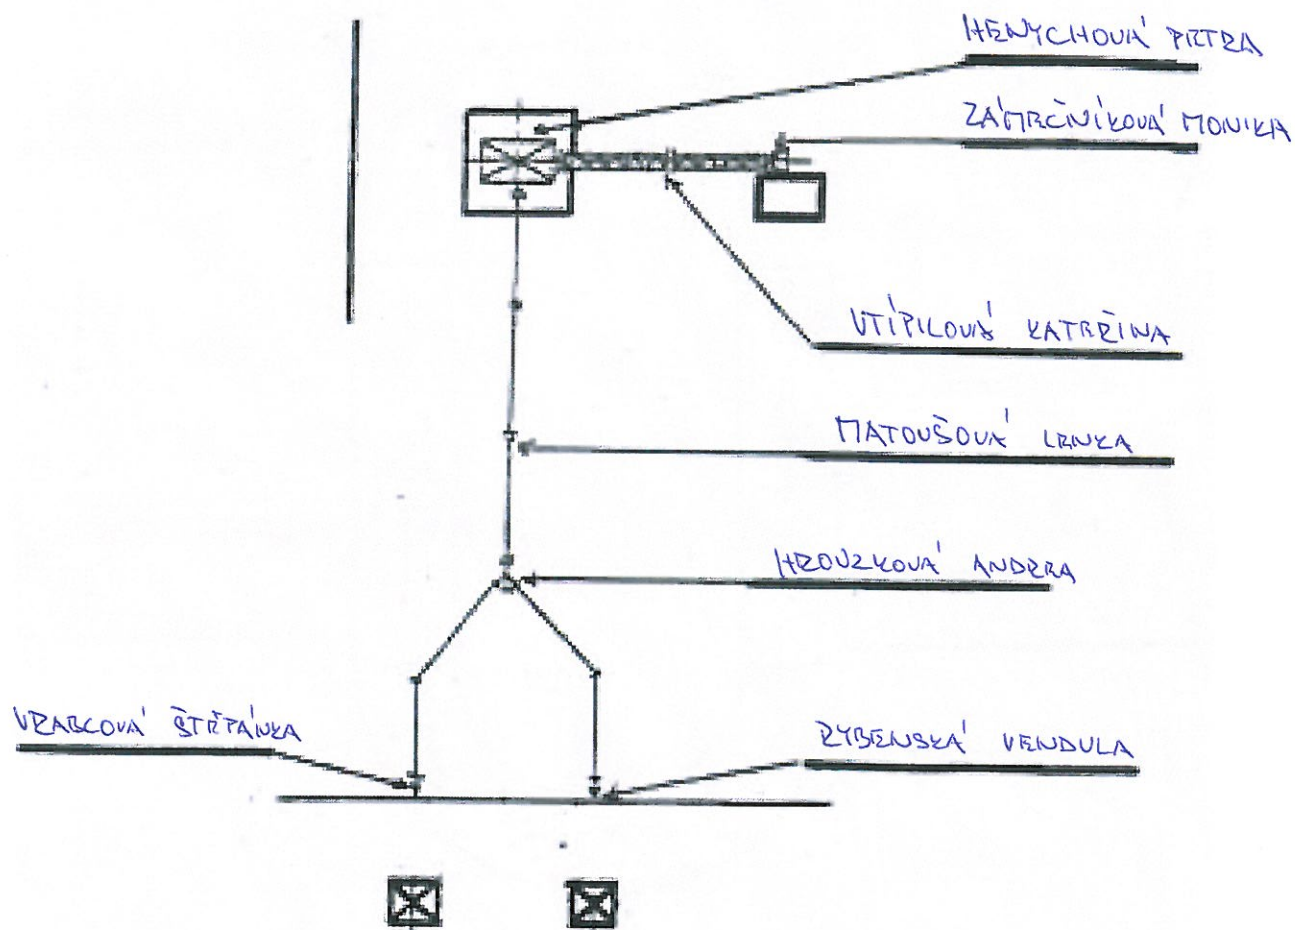 HENYCHOVÁ PETRA
ZÁMEČNÍKOVÁ MONIKA
VTÍPILOVÁ KATEŘINA
MATOUŠOVÁ LENKA
HROUZKOVÁ ANDREA
VRABCOVÁ ŠTĚPÁNKA
RYBENSKÁ VENDULA